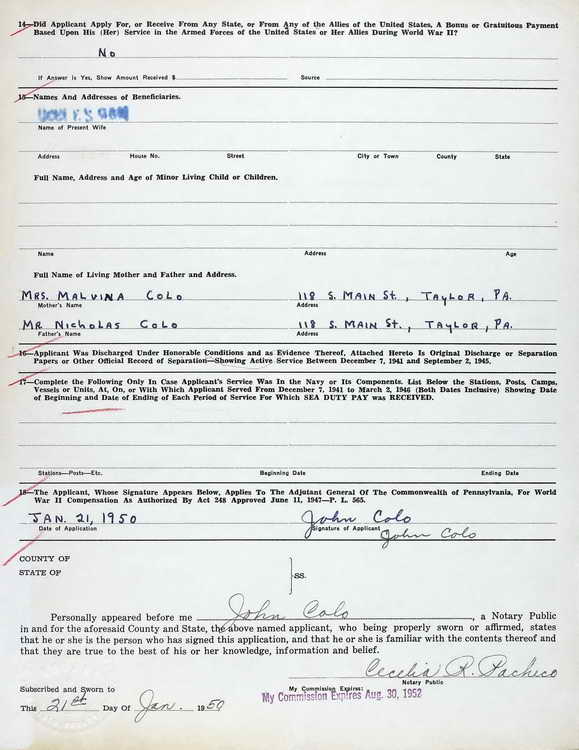 14—Did Applicant Apply For, or Receive From Any State, or From Any of the Allies of the United States, A Bonus or Gratuitous Payment
Based Upon His (Her) Service in the Armed Forces of the United States or Her Allies During World War II?
No
If Answer is Yes, Show Amount Received $ Source
15—Names And Addresses of Beneficiaries.
Name of Present Wife
Address House No. Street City or Town County State
Full Name, Address and Age of Minor Living Child or Children.
Name Address Age
Full Name of Living Mother and Father and Address.
MRS. MALVINA COLO 118 S. MAIN St., TAYLOR, PA.
Mother's Name Address
MR Nicholas Colo 118 S. MAIN St., TAYLOR, PA.
Father's Name Address
16—Applicant Was Discharged Under Honorable Conditions and as Evidence Thereof, Attached Hereto Is Original Discharge or Separation
Papers or Other Official Record of Separation—Showing Active Service Between December 7, 1941 and September 2, 1945.
17—Complete the Following Only In Case Applicant's Service Was In the Navy or Its Components. List Below the Stations, Posts, Camps,
Vessels or Units, At, On, or With Which Applicant Served From December 7, 1941 to March 2, 1946 (Both Dates Inclusive) Showing Date
of Beginning and Date of Ending of Each Period of Service For Which SEA DUTY PAY was RECEIVED.
Stations—Posts—Etc. Beginning Date Ending Date
18—The Applicant, Whose Signature Appears Below, Applies To The Adjutant General Of The Commonwealth of Pennsylvania, For World
War II Compensation As Authorized By Act 248 Approved June 11, 1947—P. L. 565.
JAN. 21, 1950 John Colo
Date of Application Signature of Applicant John Colo
COUNTY OF
STATE OF
ss.
Personally appeared before me John Colo, a Notary Public
in and for the aforesaid County and State, the above named applicant, who being properly sworn or affirmed, states
that he or she is the person who has signed this application, and that he or she is familiar with the contents thereof and
that they are true to the best of his or her knowledge, information and belief.
Cecelia R. Pacheco
Notary Public
Subscribed and Sworn to My Commission Expires:
My Commission Expires Aug. 30, 1952
This 21st Day Of Jan. 1950